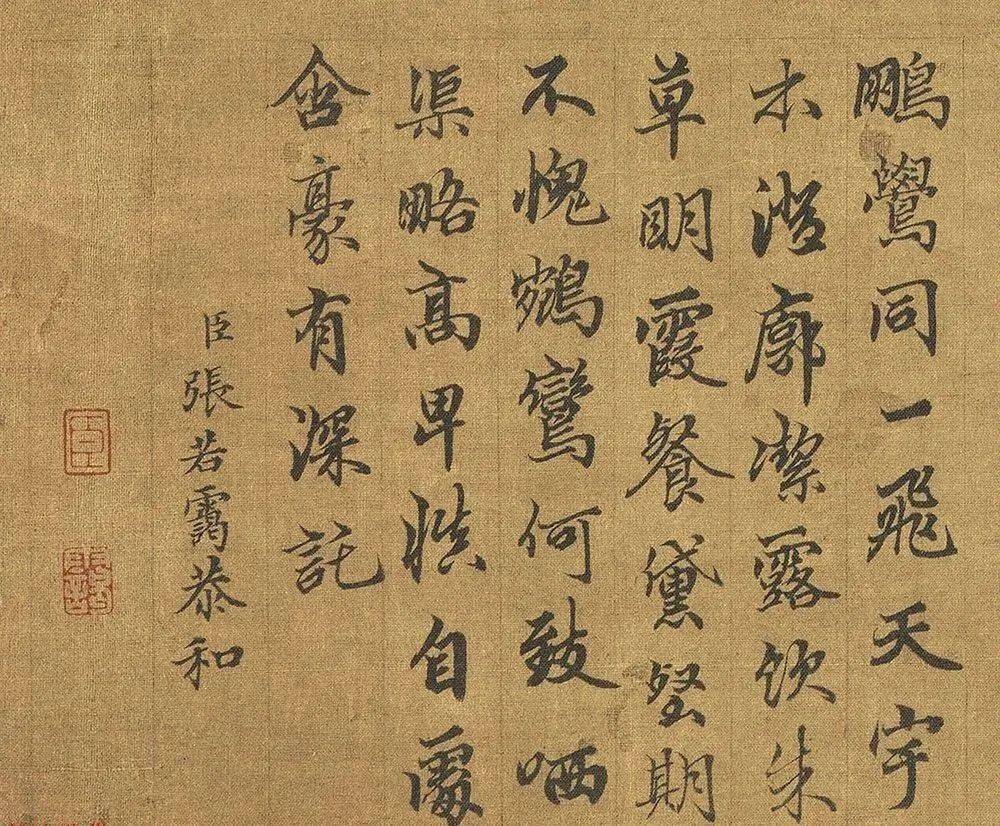 鵬鷽同一飛天宇
本澄廓潔露飲朱
草明霞餐黛壑期
不愧鵷鸞何致哂
渠略高卑慎自處
含豪有深託
臣張若靄恭和
臣